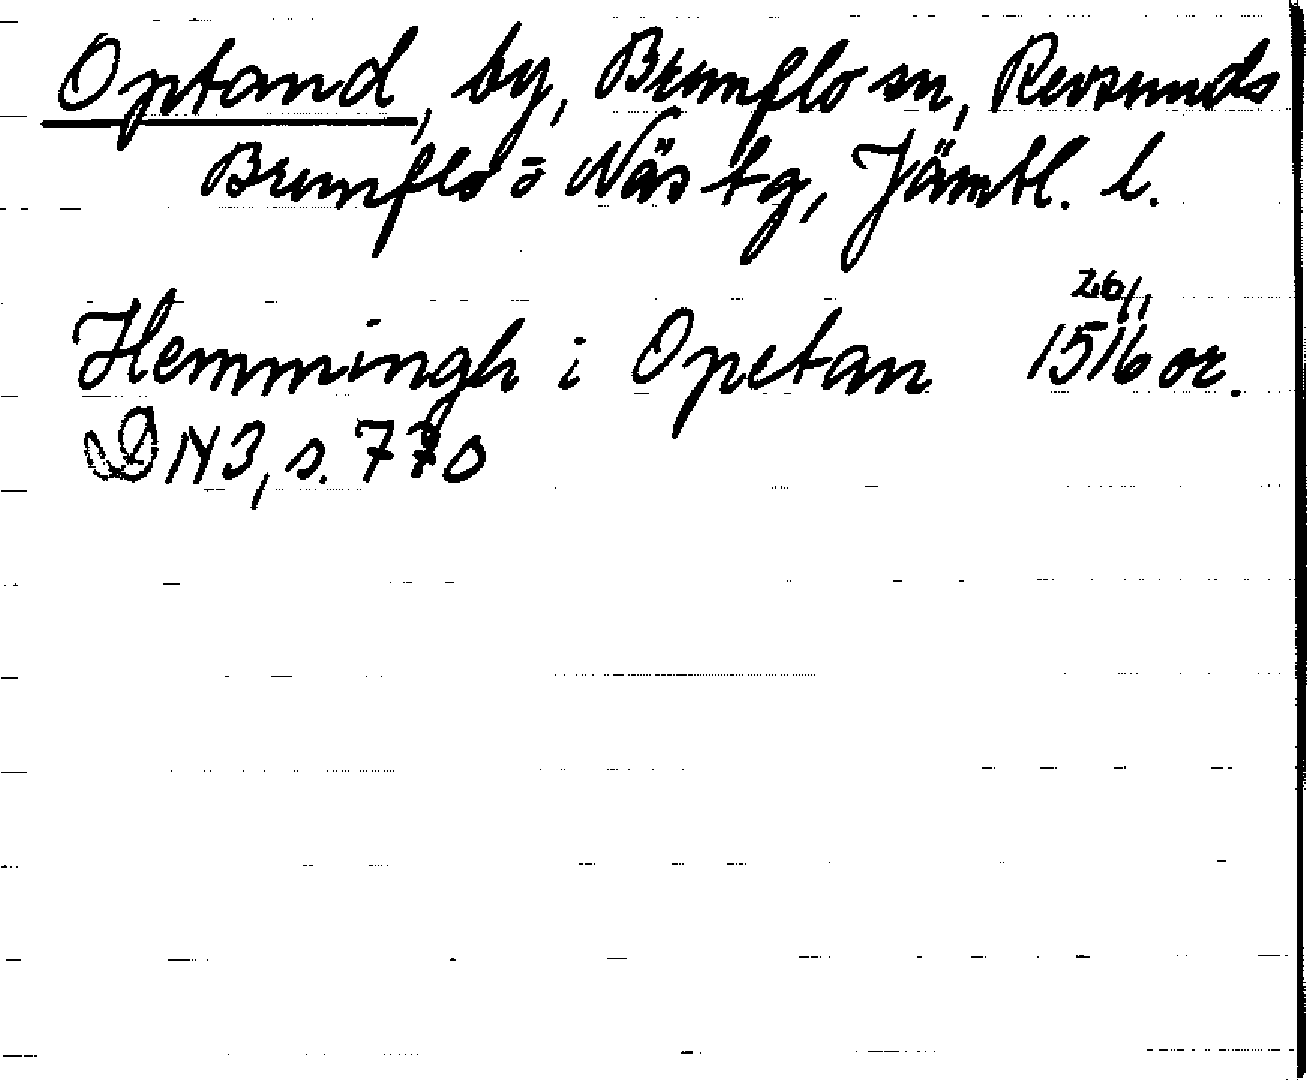 Optand, by, Brunflo sn, Revsunds
Brunflo = Näs tg, Jämtl. l.
Hemmingh i Opetan 26/1 1516 or.
DN 3, s. 770